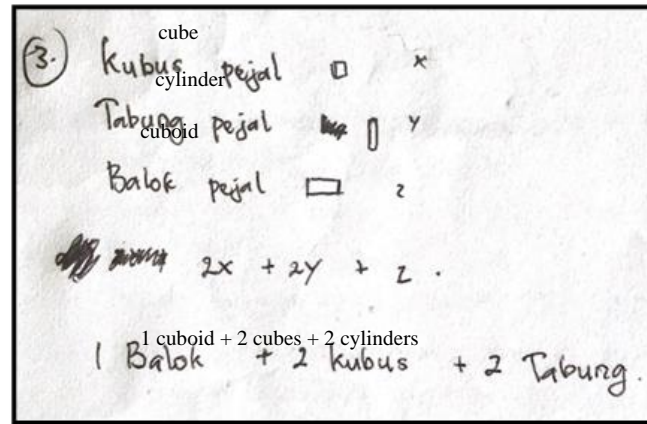 cube
3. Kubus pejal x
cylinder
Tabung pejal y
cuboid
Balok pejal z
2x + 2y + z .
1 cuboid + 2 cubes + 2 cylinders
1 Balok + 2 kubus + 2 Tabung.